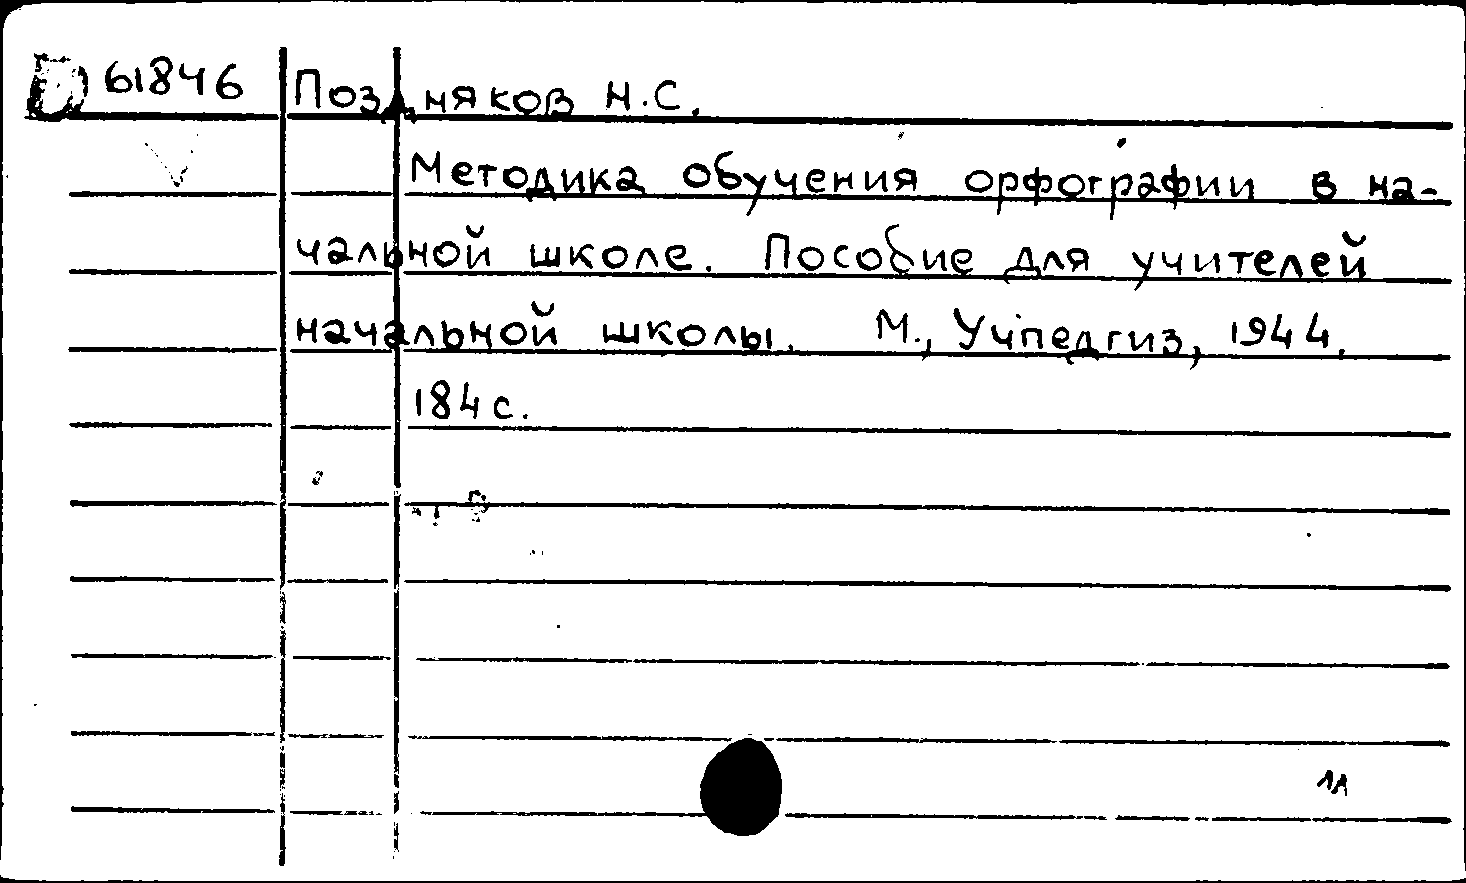 D 61846 Поздняков Н.С.
Методика обучения орфографии в на-
чальной школе. Пособие для учителей
начальной школы. М., Учпедгиз, 1944.
184 с.